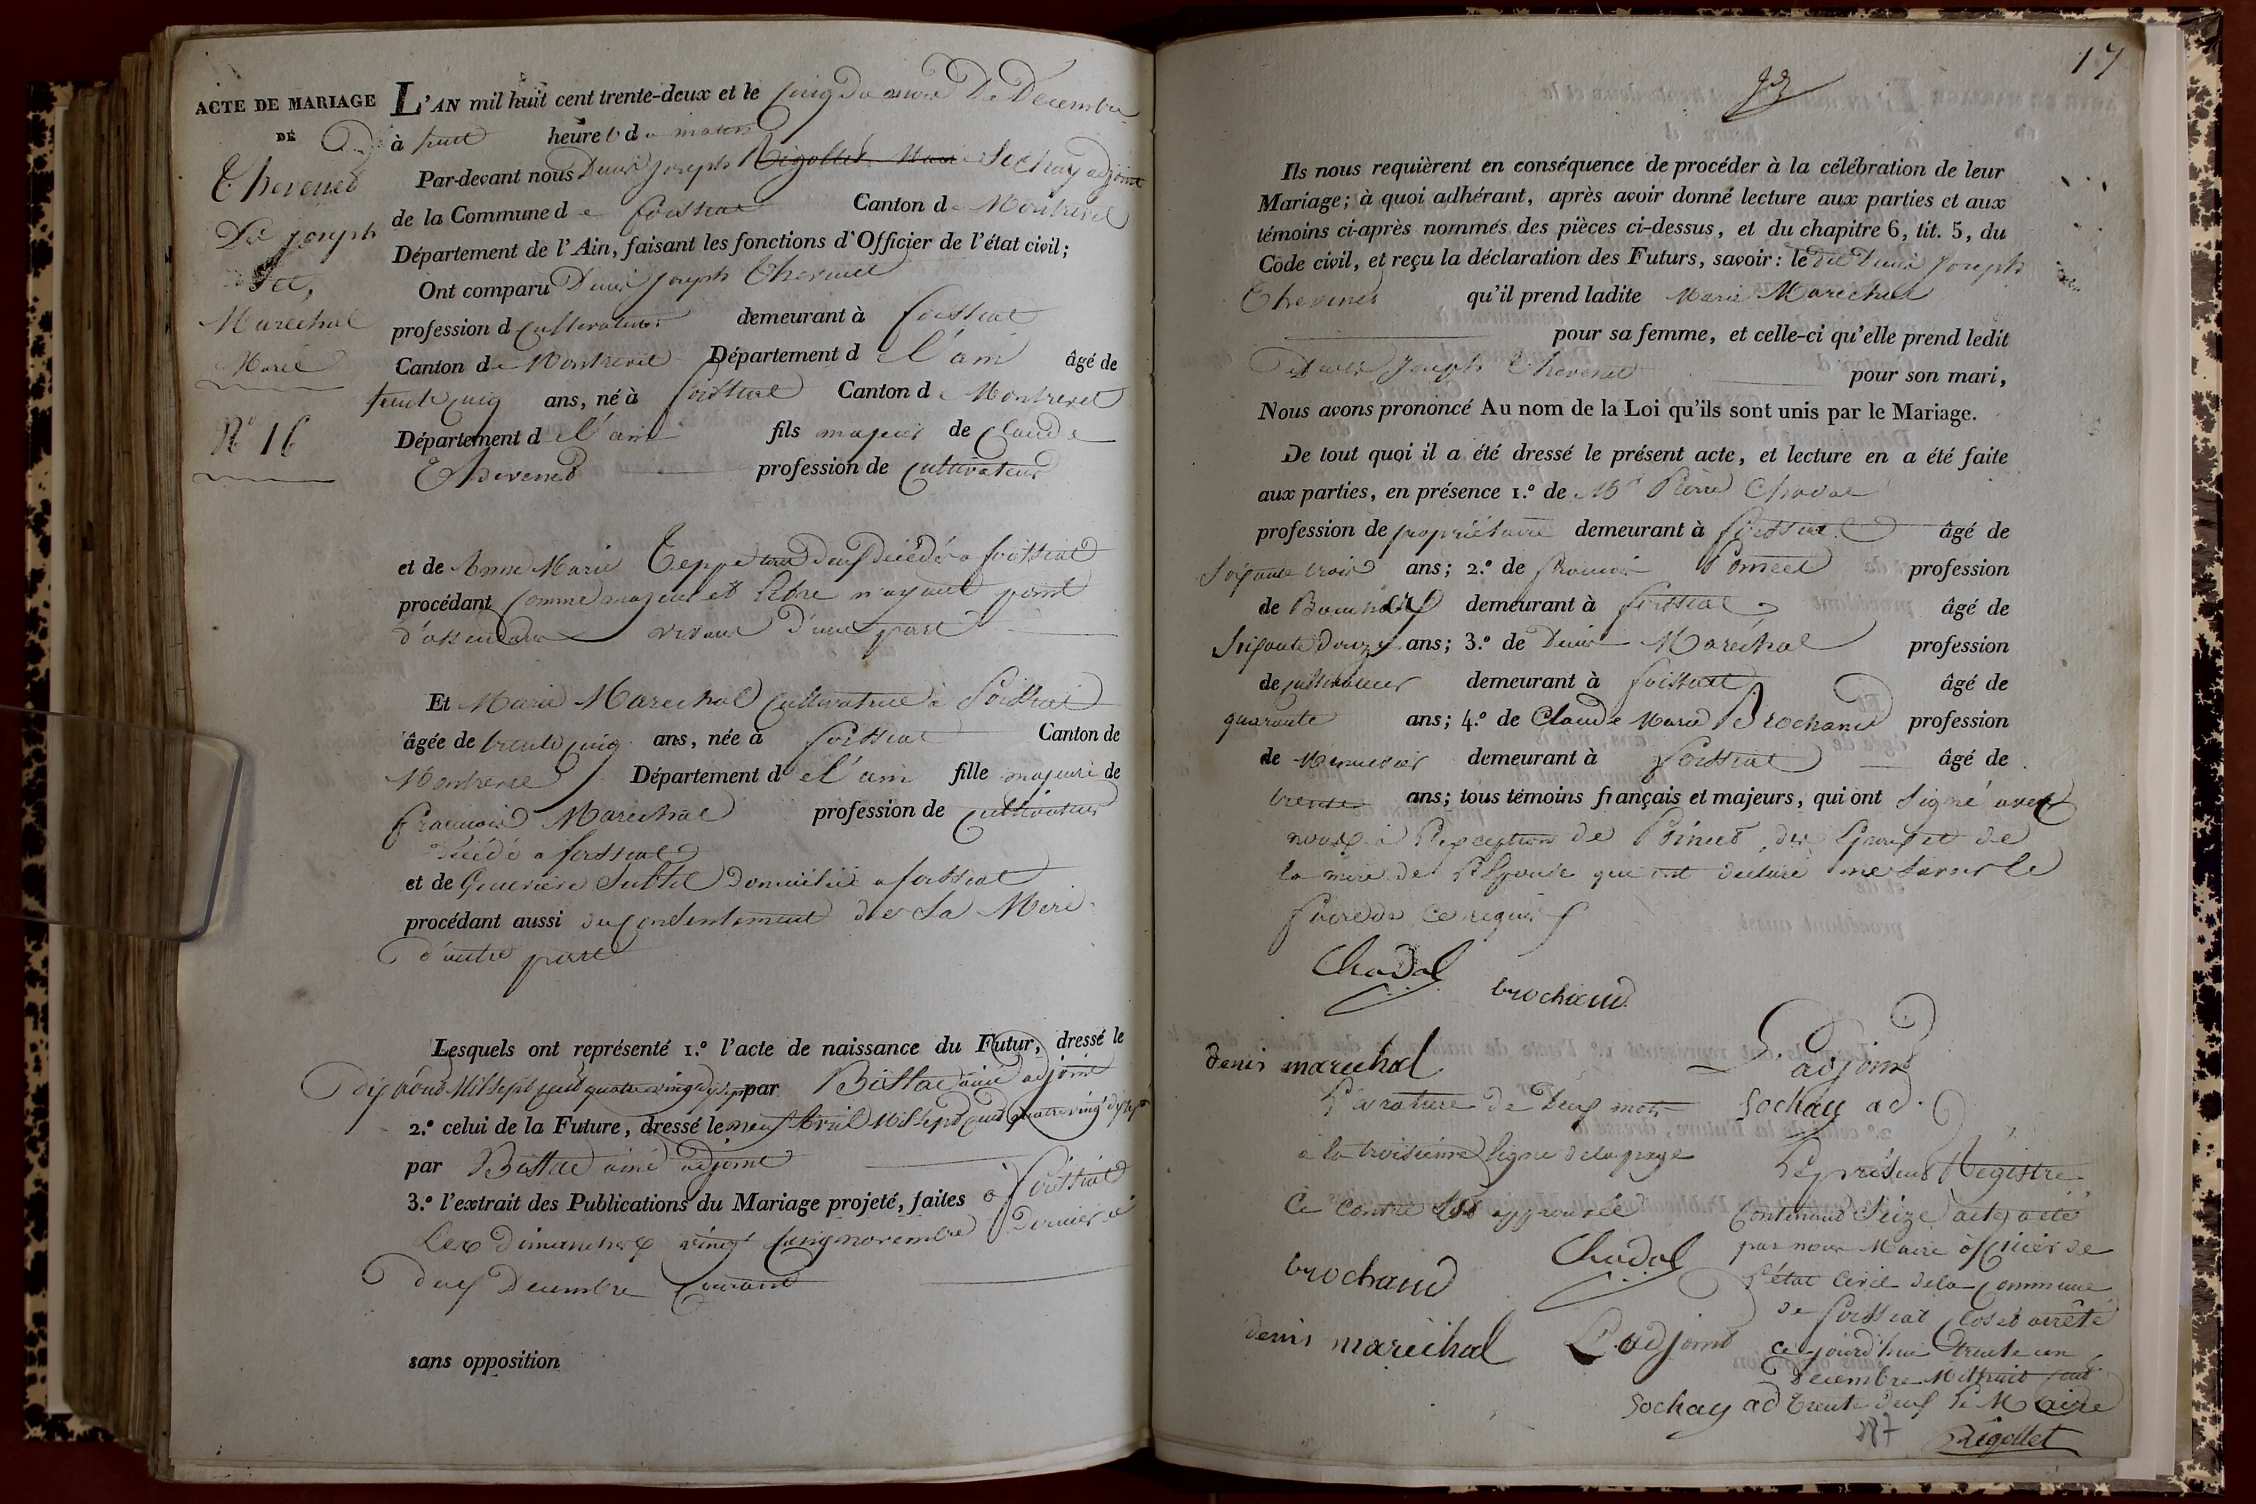 ACTE DE MARIAGE
DE
Thevenet
Denis joseph
et,
Marechal
Marie
N° 16
L'AN mil huit cent trente-deux et le cinq du mois De Décembre
à huit heures du matin
Par-devant nous Denis joseph Rigollet Maire Sochay adjoint
de la Commune de foissiat Canton de Montrevel
Département de l'Ain, faisant les fonctions d'Officier de l'état civil;
Ont comparu Denis joseph Thevenet
profession de cultivateur demeurant à foissiat
Canton de Montrevel Département de l'ain âgé de
trente cinq ans, né à foissiat Canton de Montrevel
Département de l'ain fils majeur de Claude
Thevenet profession de cultivateur
et de Anne Marie Teppe tous deux décédés a foissiat
procédant comme majeur et libre n'ayant point
d'assendans vivans d'une part
Et Marie Marechal cultivatrice à foissiat
âgée de trente cinq ans, née à foissiat Canton de
Montrevel Département de l'ain fille majeure de
francois Marechal profession de cultivateur
décédé a foissiat
et de Genevieve Subtil domiciliée a foissiat
procédant aussi du consentement de Sa Mere
d'autre part
Lesquels ont représenté 1.° l'acte de naissance du Futur, dressé le
dix Mil sept cent quatre vingt dix sept par Bissac ainé adjoint
2.° celui de la Future, dressé le neuf Avril Mil sept cent quatre vingt dix sept
par Bissac ainé adjoint
3.° l'extrait des Publications du Mariage projeté, faites à foissiat
Les dimanches vingt cinq novembre Dernier et
deux Decembre courant
sans opposition
17
Ils nous requièrent en conséquence de procéder à la célébration de leur
Mariage; à quoi adhérant, après avoir donné lecture aux parties et aux
témoins ci-après nommés des pièces ci-dessus, et du chapitre 6, tit. 5, du
Code civil, et reçu la déclaration des Futurs, savoir: le dit Denis Joseph
Thevenet qu'il prend ladite Marie Marechal
pour sa femme, et celle-ci qu'elle prend ledit
Denis Joseph Thevenet pour son mari,
Nous avons prononcé Au nom de la Loi qu'ils sont unis par le Mariage.
De tout quoi il a été dressé le présent acte, et lecture en a été faite
aux parties, en présence 1.° de Mr Pierre Chadal
profession de propriétaire demeurant à foissiat âgé de
Soixante trois ans; 2.° de francois profession
de demeurant à foissiat âgé de
Soixante Douze ans; 3.° de Denis Maréchal profession
de cultivateur demeurant à foissiat âgé de
quarante ans; 4.° de Claude Marie Brochand profession
de Menuisier demeurant à foissiat âgé de
trente ans; tous témoins français et majeurs, qui ont signé avec
nous à l'exception de des Epoux et de
la mere de l'Epouse qui ont declaré ne savoir le
faire de ce requis
Chadal
brochaud
denis marechal
L. adjoint
Sochay ad.
La rature de Deux mots
à la troisieme ligne de la page
Ci contre est approuvée
brochaud
Chadal
denis maréchal
L'adjoint
Sochay ad
Le présent Régistre
Contenant Seize actes a été
par nous Maire officier de
l'état Civil de la commune
de foissiat clos et arrêté
ce jourd'hui trente un
Decembre Mil huit cent
trente deux Le Maire
Rigollet
387